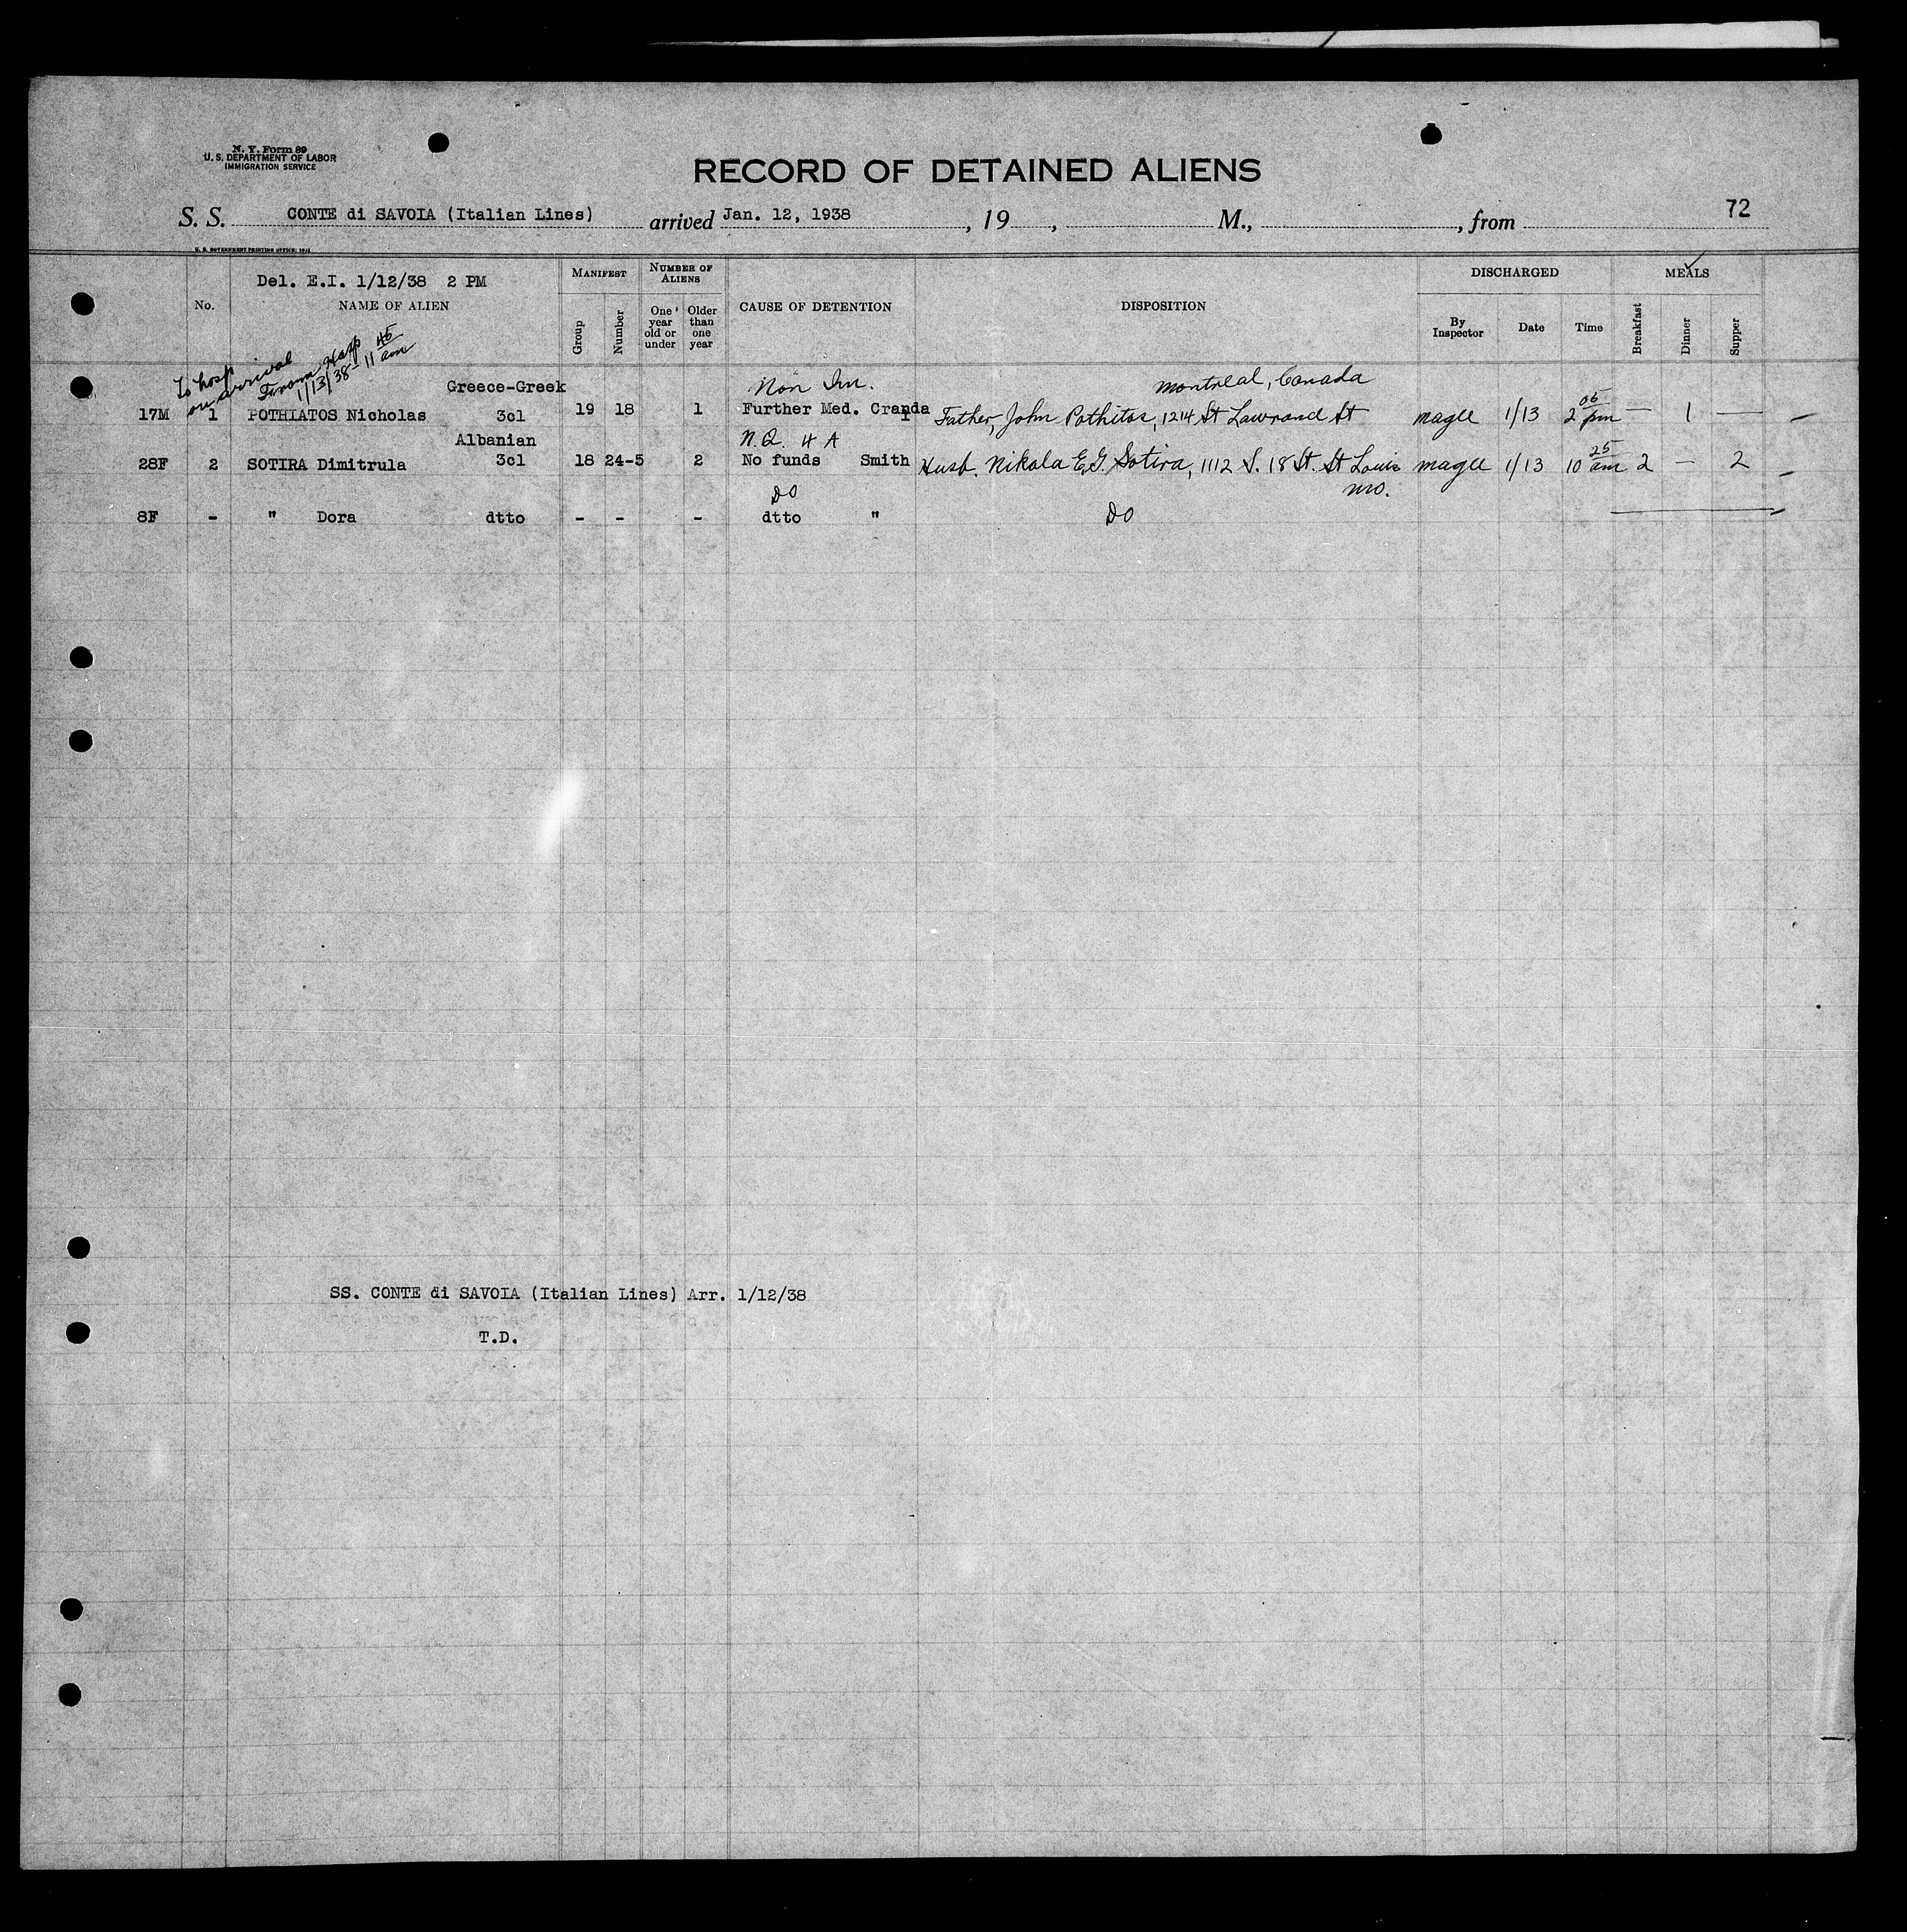 N. Y. Form 89
U. S. DEPARTMENT OF LABOR
IMMIGRATION SERVICE
RECORD OF DETAINED ALIENS
72
S. S. CONTE di SAVOIA (Italian Lines) arrived Jan. 12, 1938, 19, M., from
U. S. GOVERNMENT PRINTING OFFICE:
Del. E.I. 1/12/38 2 PM
No. NAME OF ALIEN
MANIFEST
Group Number
NUMBER OF ALIENS
One year old or under
Older than one year
CAUSE OF DETENTION
DISPOSITION
DISCHARGED
By Inspector Date Time
MEALS
Breakfast Dinner Supper
To hosp
on arrival
From Hosp
1/13/38 - 11 45 am
Greece-Greek Non Im. Montreal, Canada
17M 1 POTHIATOS Nicholas 3cl 19 18 1 Further Med. Crandal Father, John Pothitos, 1214 St Lawrand St Magee 1/13 2 05 pm — 1 —
Albanian N.Q. 4 A
28F 2 SOTIRA Dimitrula 3cl 18 24-5 2 No funds Smith Husb. Nikola E.G. Sotira, 1112 S. 18 St. St Louis Magee 1/13 10 25 am 2 — 2
Mo.
DO
8F - " Dora dtto - - - dtto " DO
SS. CONTE di SAVOIA (Italian Lines) Arr. 1/12/38
T.D.